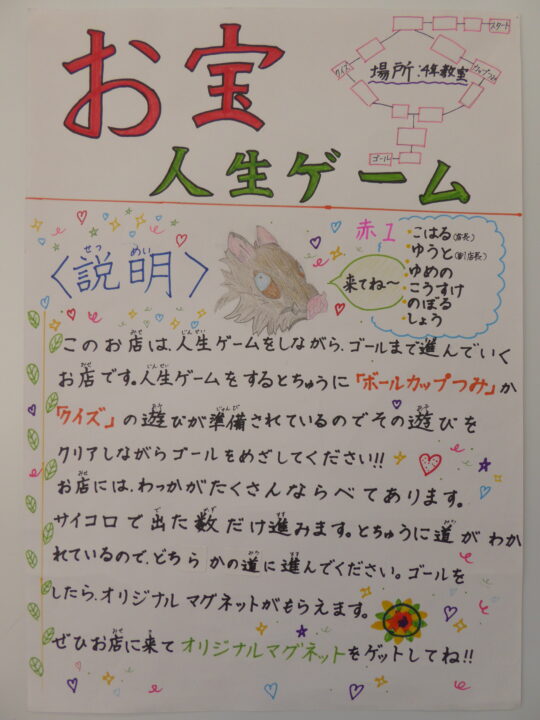 お宝
人生ゲーム
スタート
クイズ
場所:4年教室
ゴール
赤1
こはる(店長)
ゆうと(副店長)
ゆめの
こうすけ
のぼる
しょう
来てね〜
〈説明〉
せつ めい
このお店は、人生ゲームをしながら、ゴールまで進んでいく
お店です。人生ゲームをするとちゅうに「ボールカップつみ」か
「クイズ」の遊びが準備されているのでその遊びを
クリアしながらゴールをめざしてください!!
お店には、わっかがたくさんならべてあります。
サイコロで出た数だけ進みます。とちゅうに道がわか
れているので、どちらかの道に進んでください。ゴールを
したら、オリジナルマグネットがもらえます。
ぜひお店に来てオリジナルマグネットをゲットしてね!!